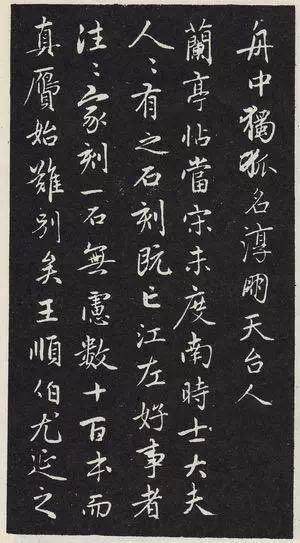 舟中獨孤名淳朋天台人
蘭亭帖當宋未度南時士大夫
人〻有之石刻既亡江左好事者
往〻家刻一石無慮數十百本而
真贋始難別矣王順伯尤延之